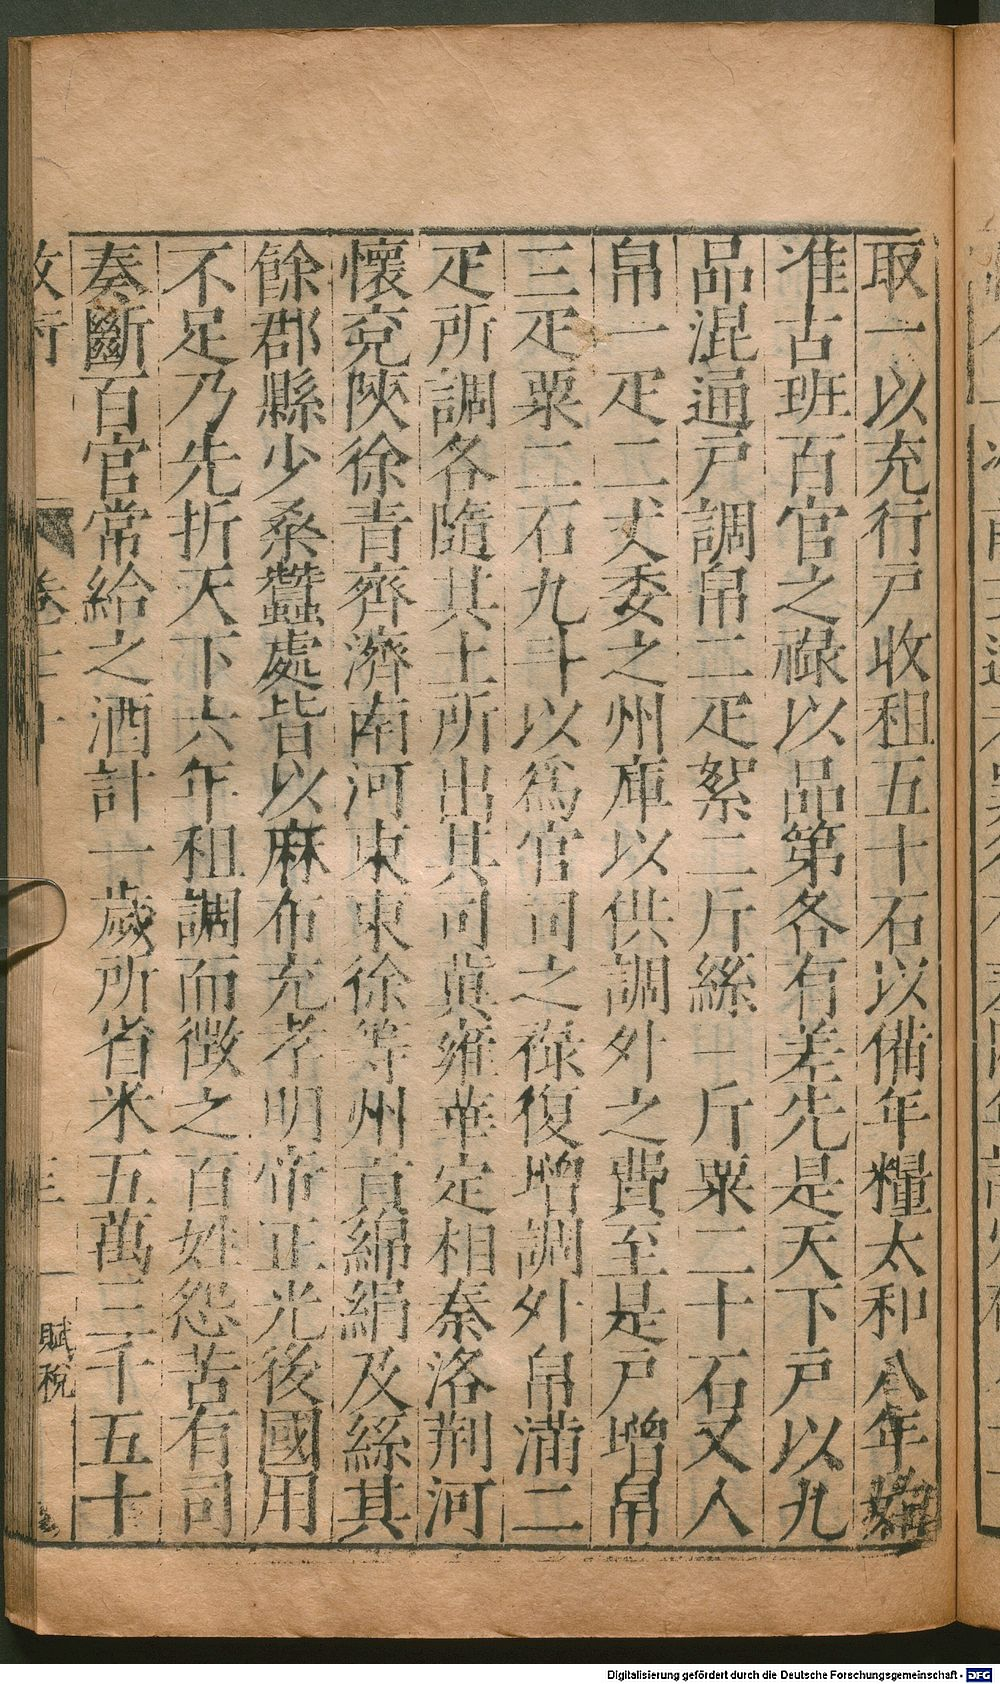 取一以充行戶收租五十石以備年糧太和八年始
准古班百官之祿以品第各有差先是天下戶以九
品混通戶調帛二疋絮二斤絲一斤粟二十石又入
帛一疋二丈委之州庫以供調外之費至是戶增帛
三疋粟二石九斗以爲官司之祿復增調外帛滿二
疋所調各隨其土所出其司冀雍華定相秦洛荆河
懷兗陝徐青齊濟南河東東徐等州貢綿絹及絲其
餘郡縣少桑蠶處皆以麻布充孝明帝正光後國用
不足乃先折天下六年租調而徴之百姓怨苦有司
奏斷百官常給之酒計一歲所省米五萬三千五十
卷二十
賦稅
Digitalisierung gefördert durch die Deutsche Forschungsgemeinschaft - DFG